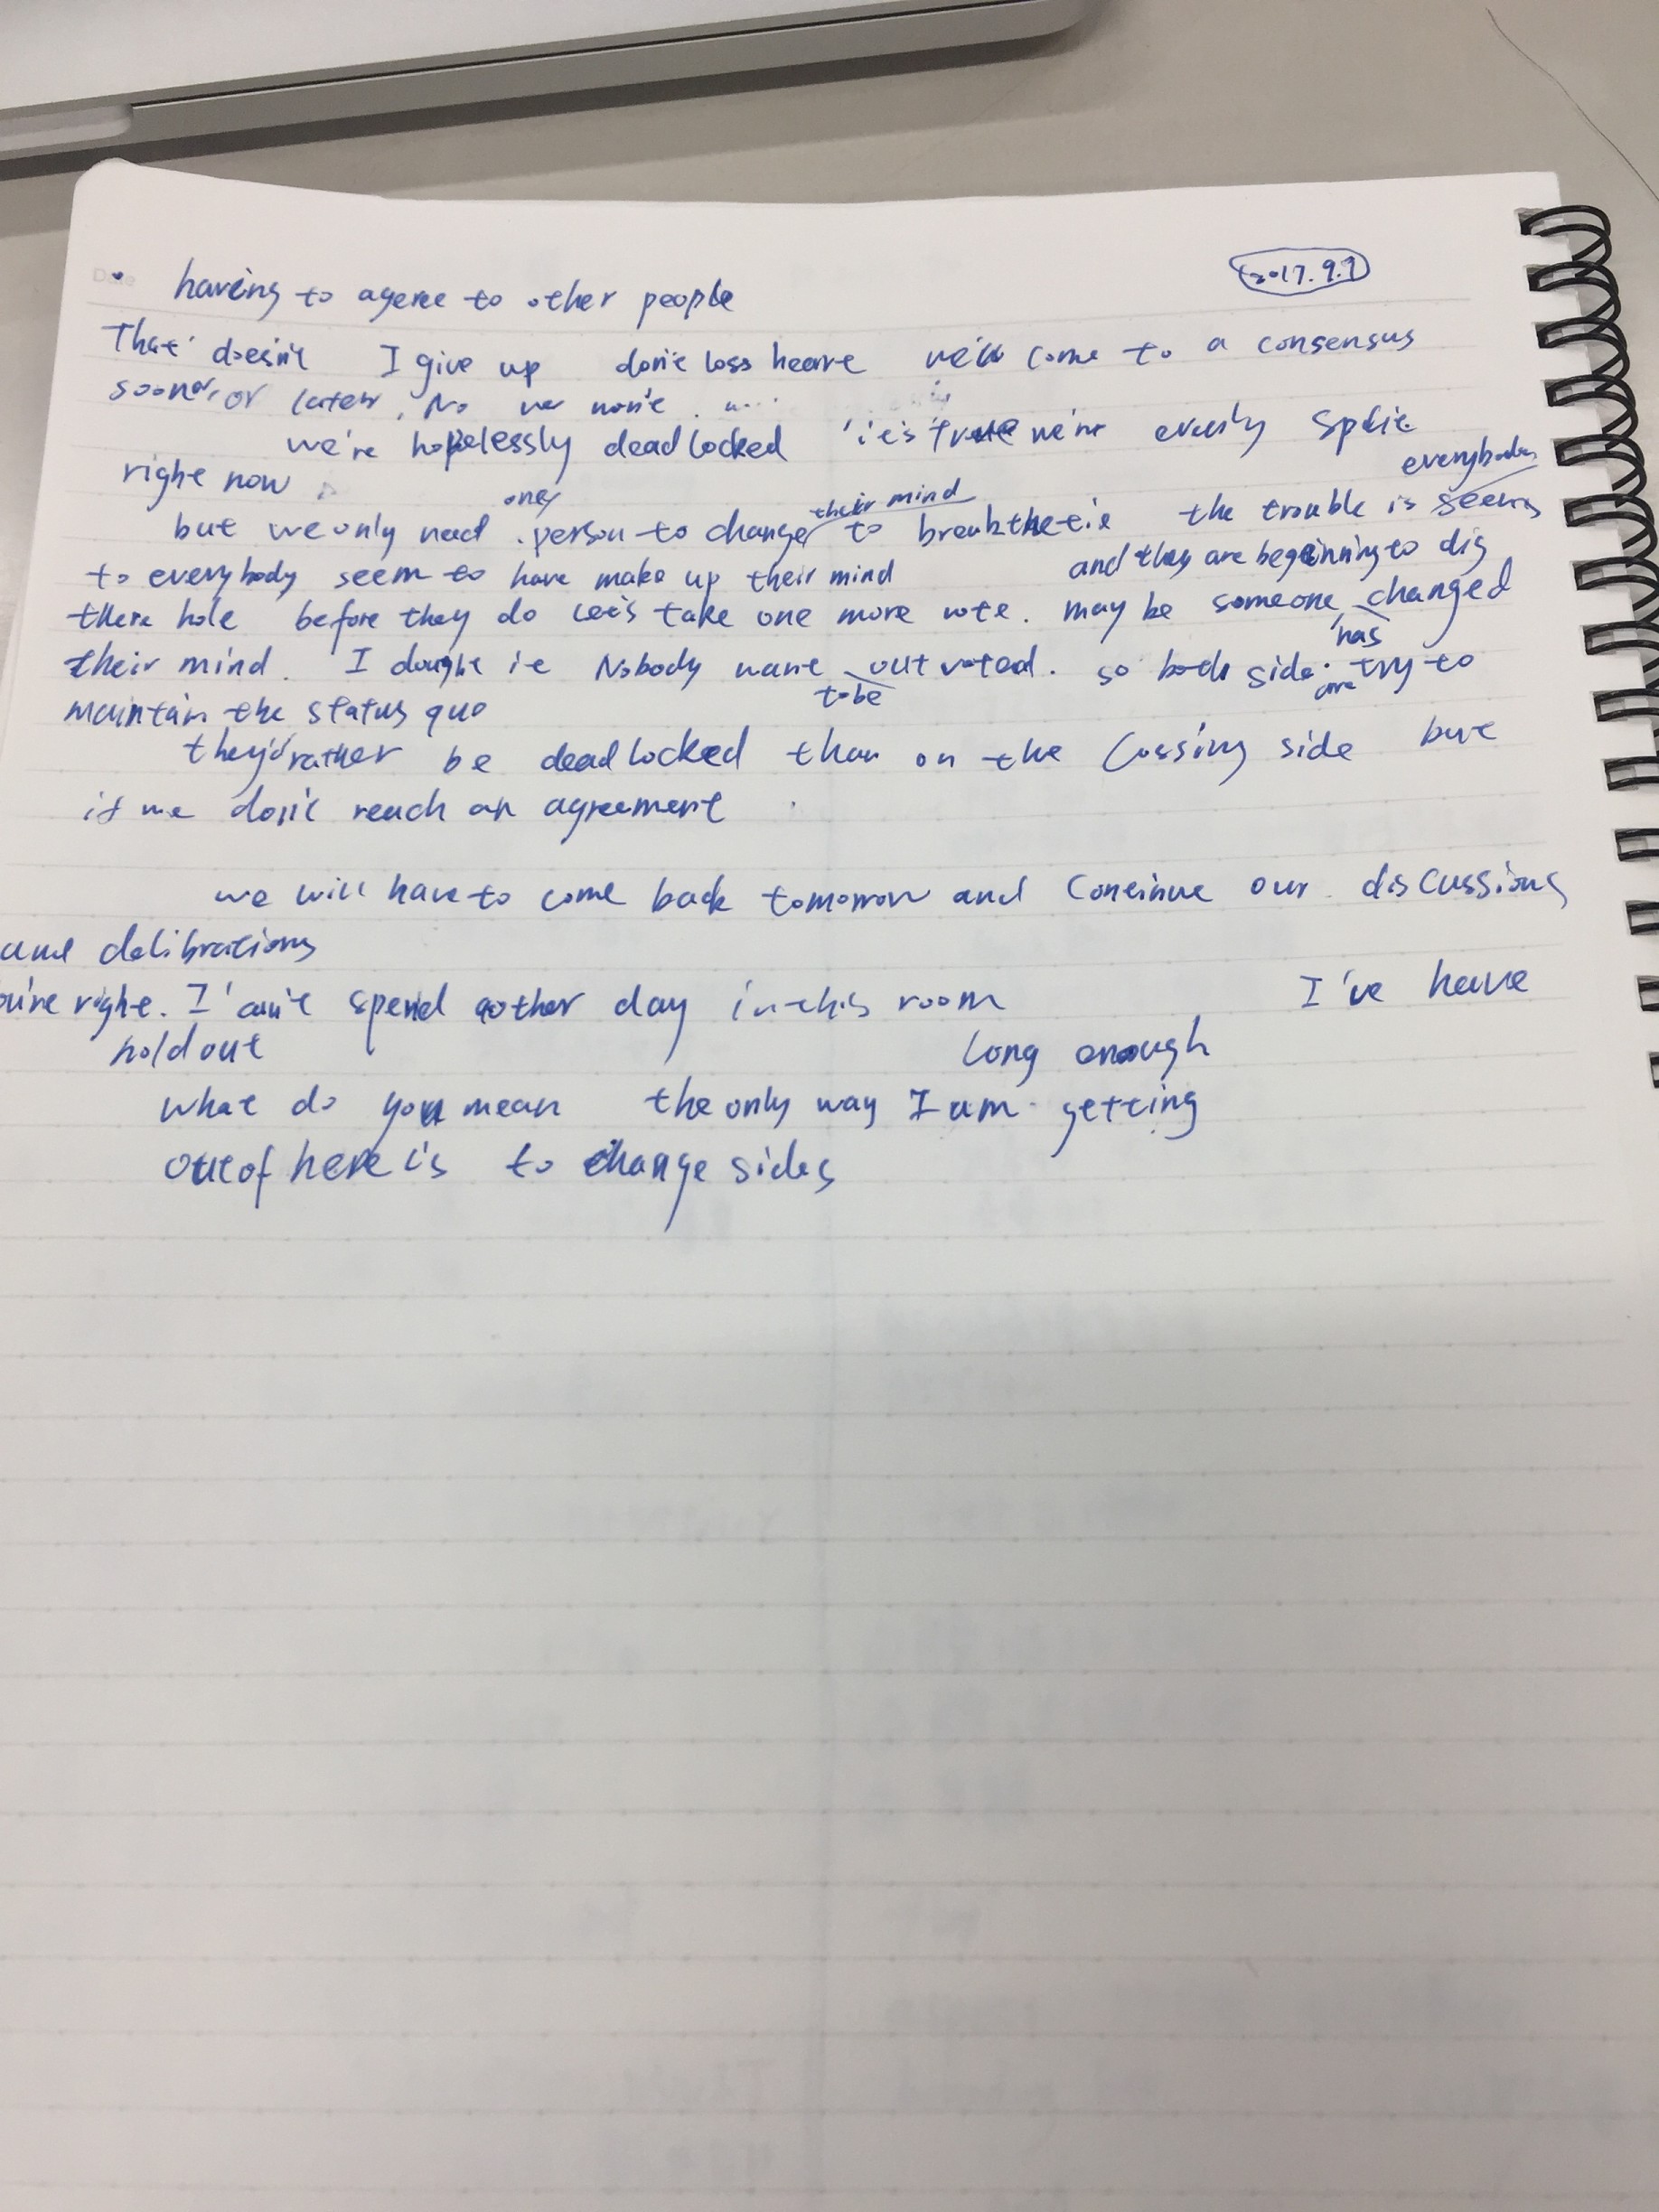 2017.9.7
having to agree to other people
That doesn't I give up don't loss heart we'll come to a consensus
sooner or later. No we won't.
we're hopelessly deadlocked it's true we're evenly split
right now
everybody
one their mind
but we only need person to change to break the tie the trouble is seems
to everybody seem to have make up their mind and they are beginning to dig
there hole before they do let's take one more vote. may be someone changed
has
their mind. I dought it Nobody want out voted. so both side try to
to be are
maintain the status quo
they'd rather be deadlocked than on the lossing side but
if we don't reach an agreement
we will have to come back tomorrow and continue our discussions
and delibrations
You're right. I can't spend aother day in this room I've have
hold out long enough
what do you mean the only way I am getting
out of here is to change sides